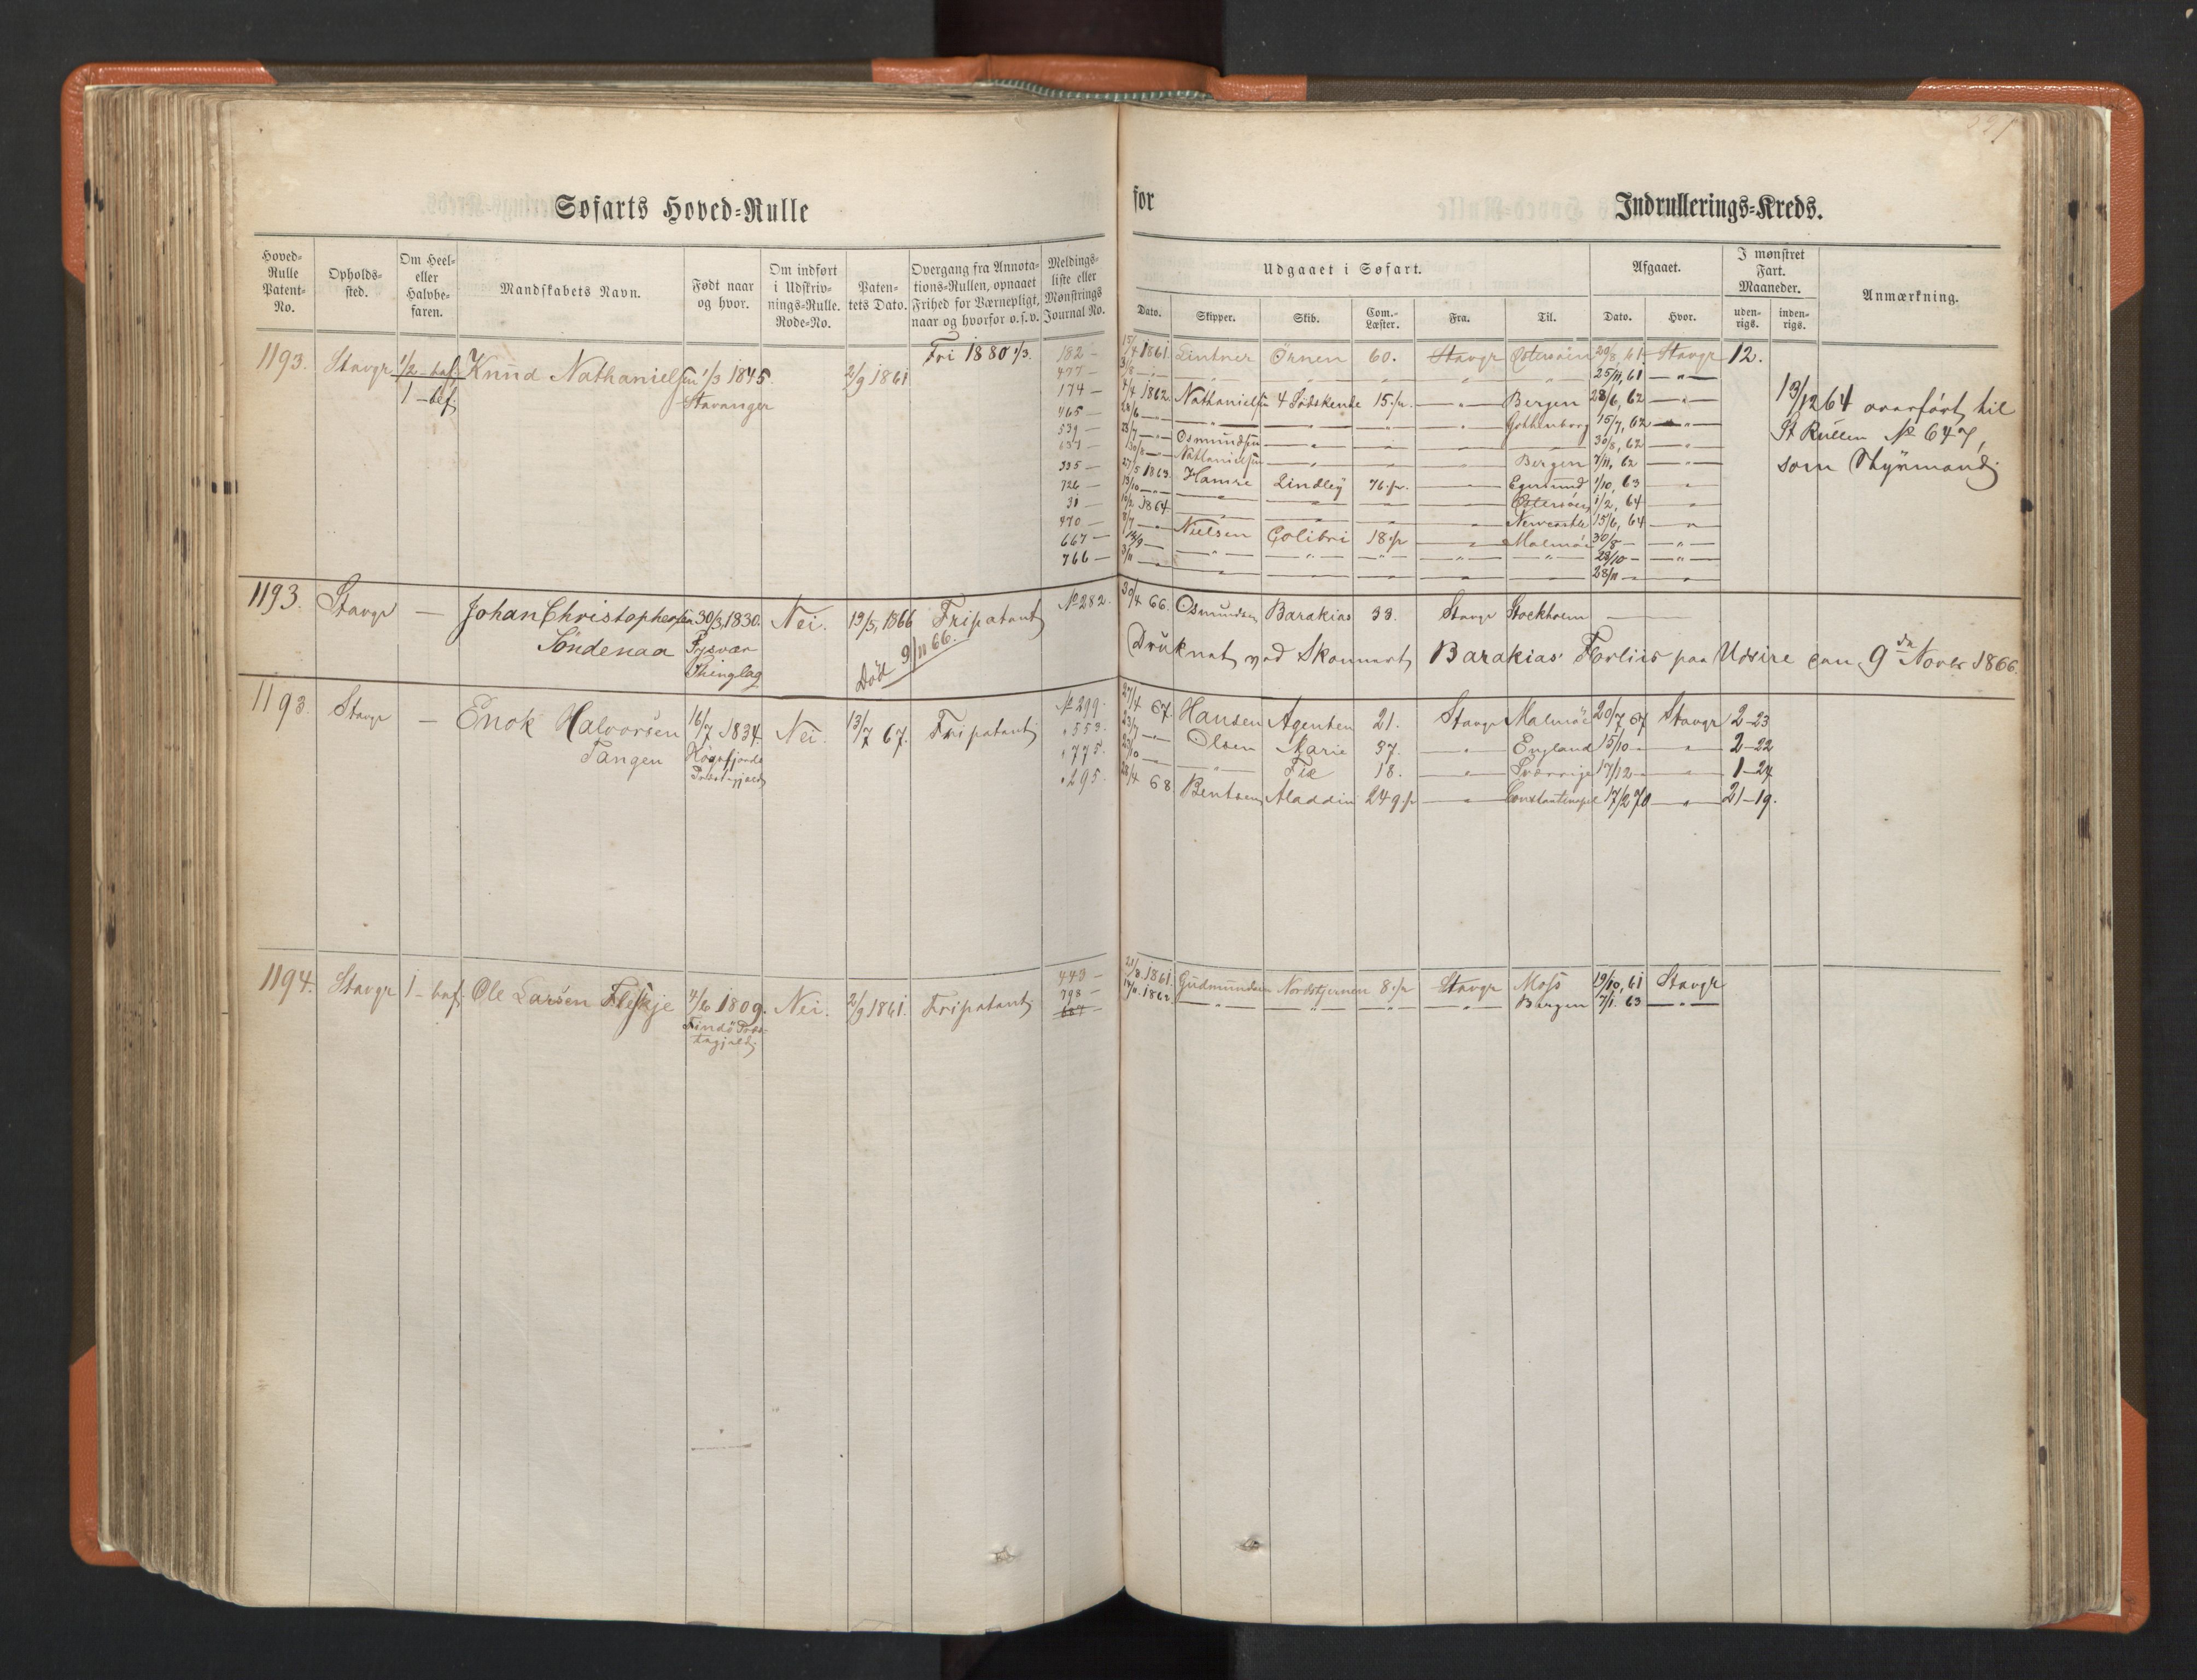 227
Søfarts Hoved-Rulle
for Indrullerings-Kreds.
Hoved-Rulle Patent-No.
Opholds-sted.
Om Heel- eller Halvbe-faren.
Mandskabets Navn.
Født naar og hvor.
Om indført i Udskriv-nings-Rulle. Rode-No.
Paten-tets Dato.
Overgang fra Annota-tions-Rullen, opnaaet Frihed for Værnepligt, naar og hvorfor o.s.v.
Meldings-liste eller Mønstrings Journal No.
Udgaaet i Søfart.
Dato. Skipper. Skib. Com.-Læster. Fra. Til.
Afgaaet.
Dato. Hvor.
I mønstret Fart. Maaneder.
uden-rigs. inden-rigs.
Anmærkning.
1193. Stavgr 1/2 - bef. Knud Nathanielsen 1/3 1845. 2/9 1861 Fri 1880 1/3.
1 - bef. Stavanger
182 - 15/4 1861 Lintner Örnen 60. Stavgr Østersöen 20/8, 61 Stavgr 12.
477 - 25/11, 61 — " —
174 - 4/4 1862 Nathanielsen 4 Södskende 15. pr. — " — Bergen 28/6, 62 — " —
465 - Gothenborg 15/7, 62 — " —
539 - Osmundsen 30/8, 62 — " —
637 - Nathanielsen Bergen 7/11, 62 — " —
335 - 27/5 1863 Hamre Lindley 76. pr. Egersund 1/10, 63 — " —
726 - 13/10 Østersöen 1/2, 64 — " —
31 - 10/2 1864 Newcastle 15/6, 64 — " —
470 - 8/7 Nielsen Colibri 18. pr Malmöe 30/8 — " —
667 - 14/9 28/10 - — " —
766 - 3/11 28/11 - — " —
13/12 64 overfört til
St Rullen No 647,
som Styrmand
1193. Stavgr — Johan Christophersen 30/3, 1830. Nei. 19/5, 1866 Fripatent No 282. 30/4 66. Osmundsen Barakias 33. Stavgr Stockholm
Söndenaa Tysvær Thinglag Död 9/11 66.
Druknet ved Skonnert Barakias Forliis paa Udsire den 9de Novbr 1866.
1193. Stavgr — Enok Halvorsen 16/7 1834. Nei. 13/7 67. Fripatent No 299. 27/4 67. Hansen Agenten 21. Stavgr Malmöe 20/7, 67 Stavgr 2-23
Tangen Högsfjords Præstegjeld
" 553. 23/7 Olsen Marie 37. — " — England 15/10 — " — 2-22
" 775. Fix 18. — " — Sverrige 17/12 — " — 1-24
" 295. 28/4 68 Bentsen Aladdin 249. pr — " — Constantinopel 17/2 70 — " — 21-19.
1194. Stavgr 1 - bef. Ole Larsen Fleskje 4/6 1809. Nei. 2/9 1861. Fripatent 443 - 21/8. 1861. Gudmundsen Nordstjernen 8. pr Stavgr Moss 19/10, 61 Stavgr
Findö Præstegjeld
798 - 17/11. 1862. — " — — " — — " — — " — Bergen 7/1. 63 — " —